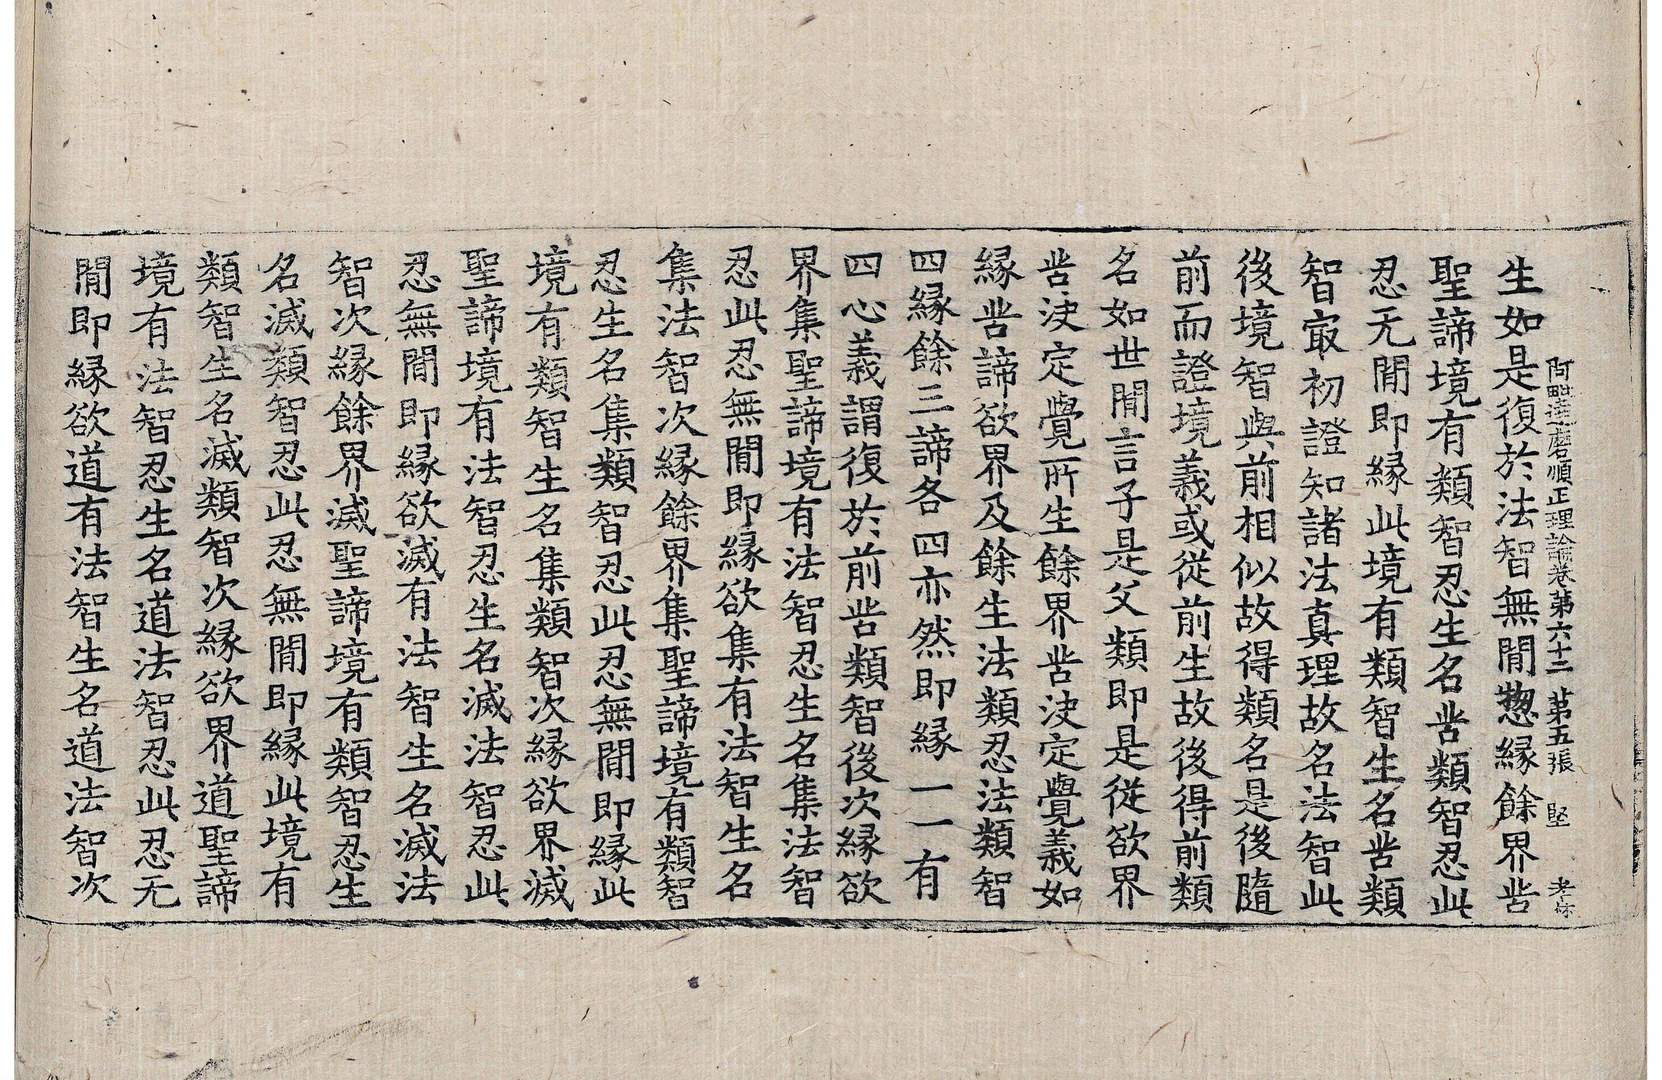 阿毗達磨順正理論卷第六十二 第五張 堅 老休
生如是復於法智無閒揔緣餘界苦
聖諦境有類智忍生名苦類智忍此
忍无閒即緣此境有類智生名苦類
智㝡初證知諸法真理故名法智此
後境智與前相似故得類名是後隨
前而證境義或從前生故後得前類
名如世閒言子是父類即是從欲界
苦決定覺所生餘界苦決定覺義如
緣苦諦欲界及餘生法類忍法類智
四緣餘三諦各四亦然即緣一一有
四心義謂復於前苦類智後次緣欲
界集聖諦境有法智忍生名集法智
忍此忍無閒即緣欲集有法智生名
集法智次緣餘界集聖諦境有類智
忍生名集類智忍此忍無閒即緣此
境有類智生名集類智次緣欲界滅
聖諦境有法智忍生名滅法智忍此
忍無閒即緣欲滅有法智生名滅法
智次緣餘界滅聖諦境有類智忍生
名滅類智忍此忍無閒即緣此境有
類智生名滅類智次緣欲界道聖諦
境有法智忍生名道法智忍此忍无
閒即緣欲道有法智生名道法智次